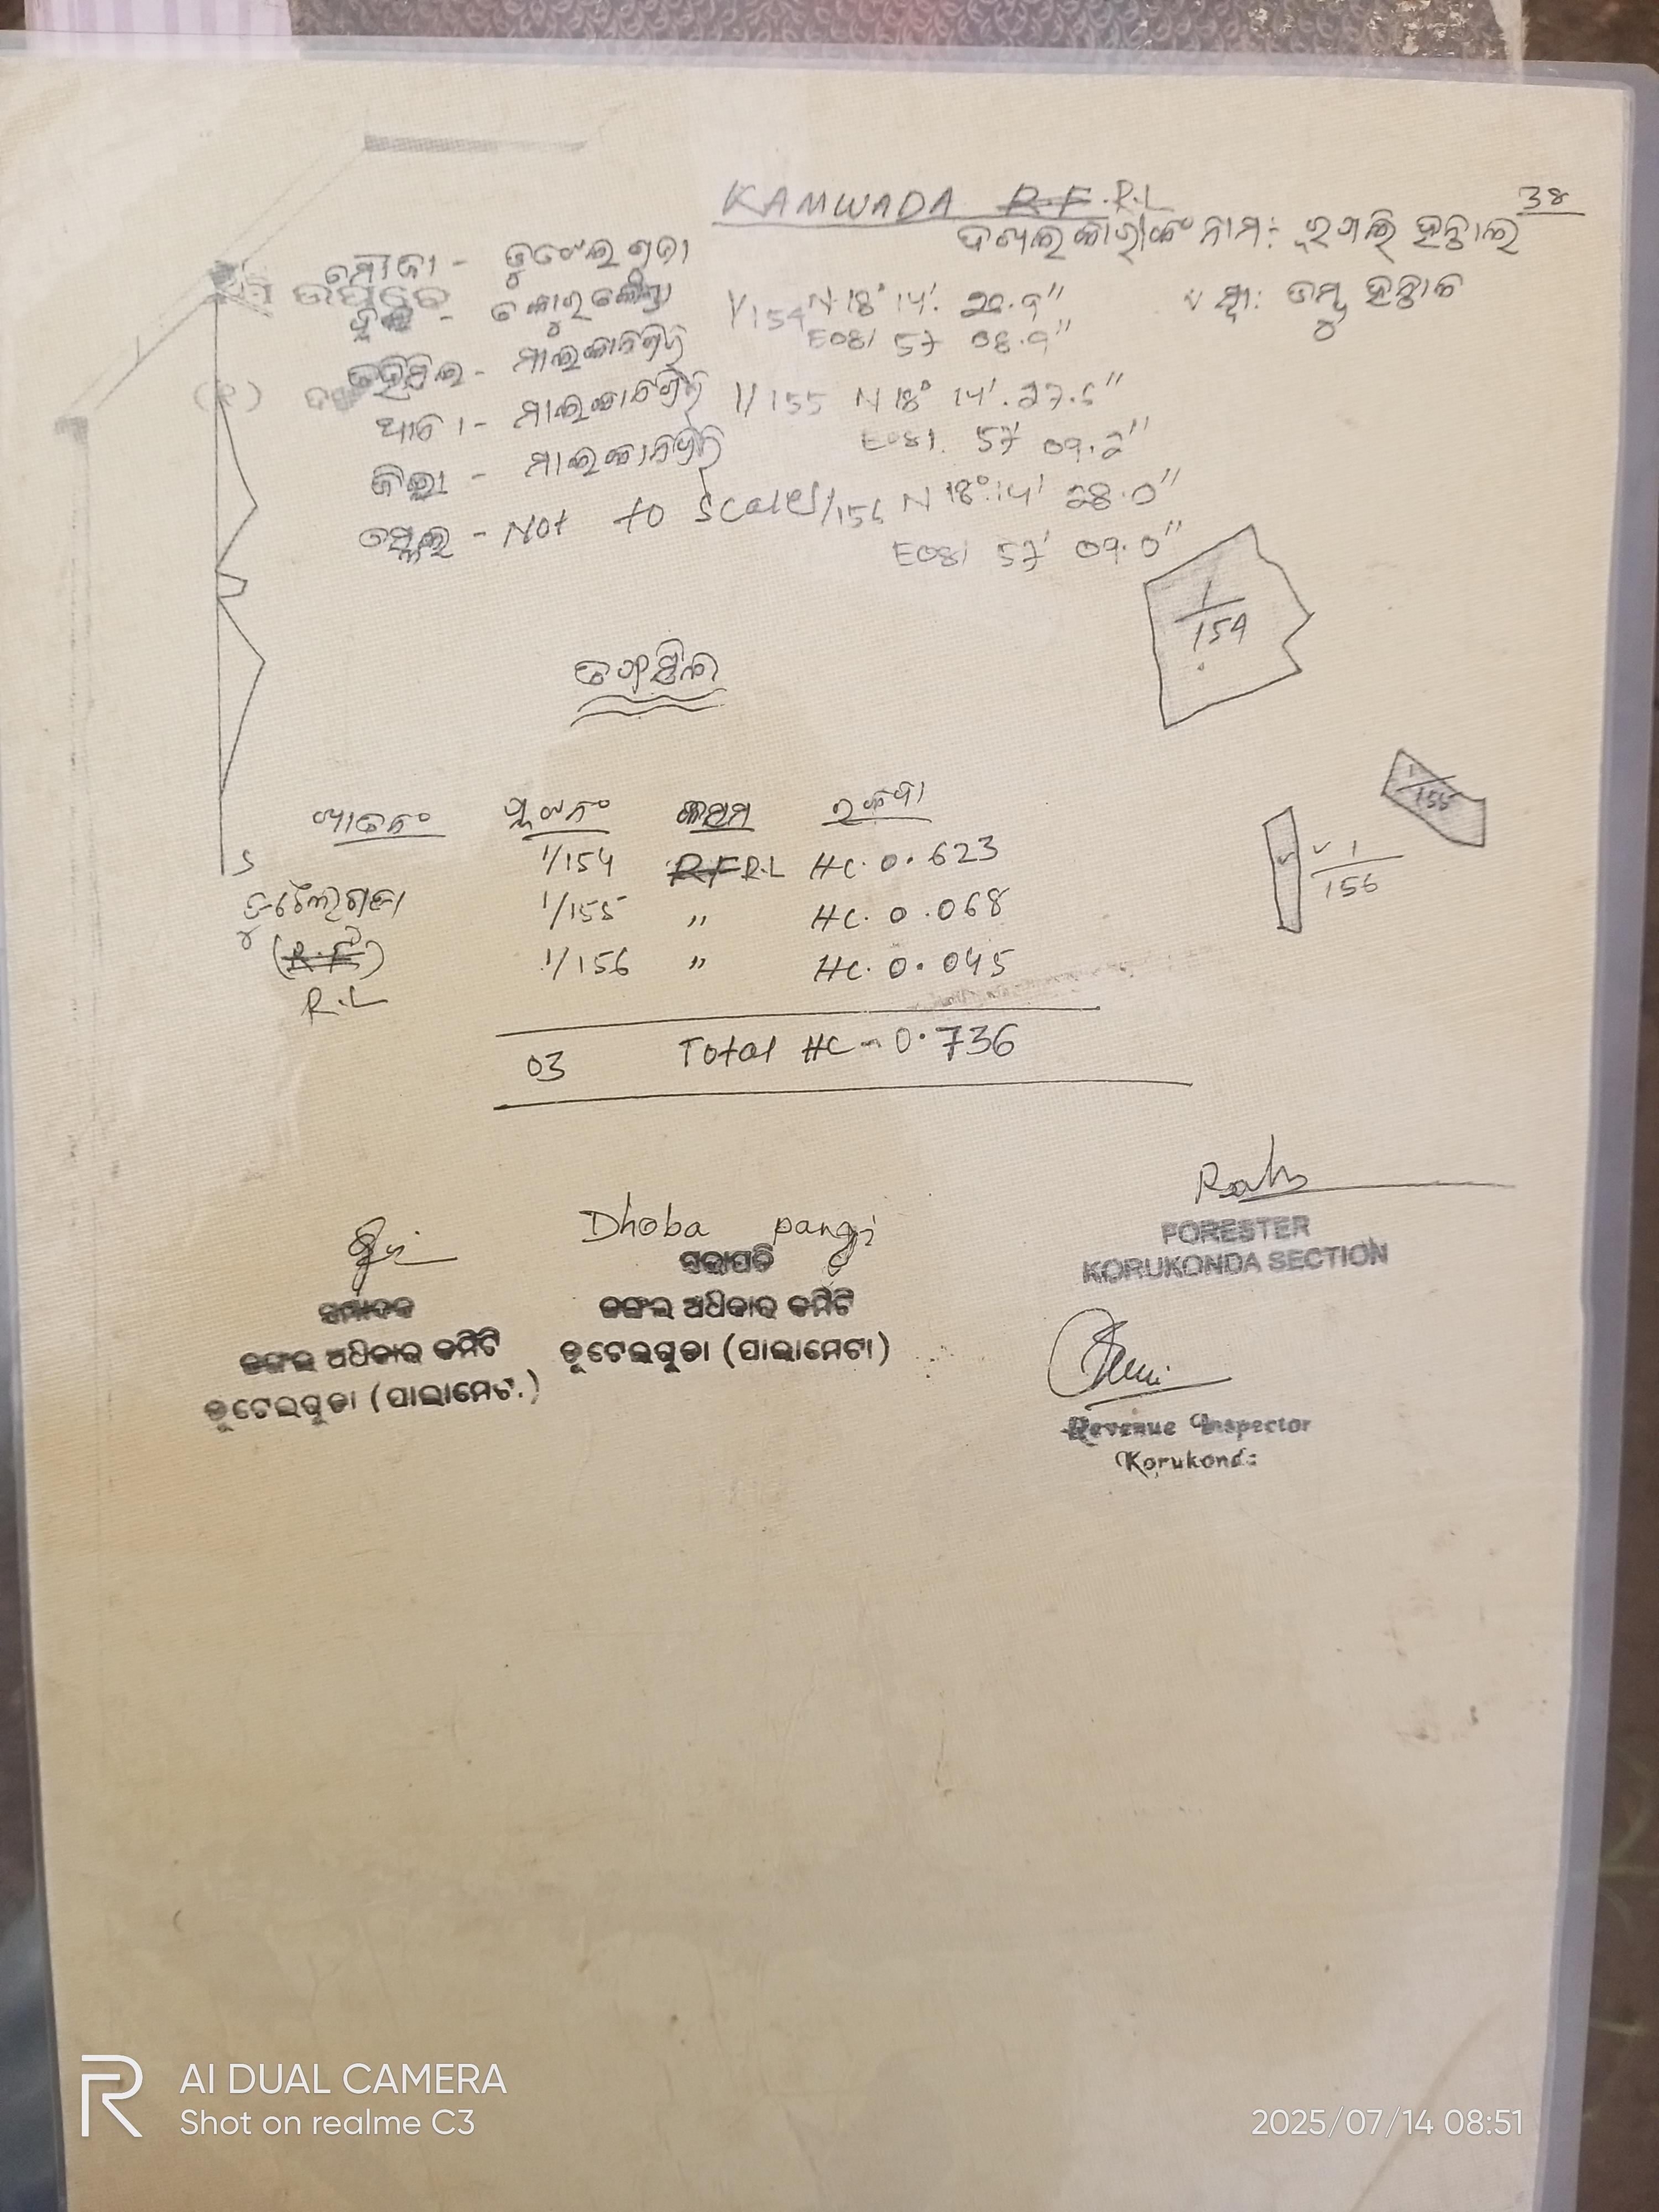 KAMWADA R.F. R.L
34
ଦଖଲକାରୀଙ୍କ ନାମ: ରଗଲି ହନ୍ତାଲ
ମୌଜା - ଡୁଟେଲଗୁଡା
ତହସିଲ - ମାଲକାନଗିରି
ଥାନା - ମାଲକାନଗିରି
ଜିଲ୍ଲା - ମାଲକାନଗିରି
ସ୍କେଲ - Not to Scale
1/154 N 18° 14'
E081 57
1/155 N 18° 14'. 27.5"
E081. 57' 09.2"
1/156 N 18° 14' 28.0"
E081 57' 09.0"
1/154
1/155
1/156
ତପସିଲ
ଖାତାନଂ ପ୍ଲଟନଂ କିସମ ରକବା
S
1/154 R.F R.L HC. 0.623
ଡୁଟେଲଗୁଡା 1/155 " HC. 0.068
(R.F) 1/156 " HC. 0.045
R.L
03 Total HC - 0.736
Dhoba pangi
ସଭାପତି
ଜଙ୍ଗଲ ଅଧିକାର କମିଟି
ଡୁଟେଲଗୁଡା (ପାଲାମେଟା)
ସମ୍ପାଦକ
ଜଙ୍ଗଲ ଅଧିକାର କମିଟି
ଡୁଟେଲଗୁଡା (ପାଲାମେଟ.)
FORESTER
KORUKONDA SECTION
Revenue Inspector
Korukond
AI DUAL CAMERA
Shot on realme C3
2025/07/14 08:51